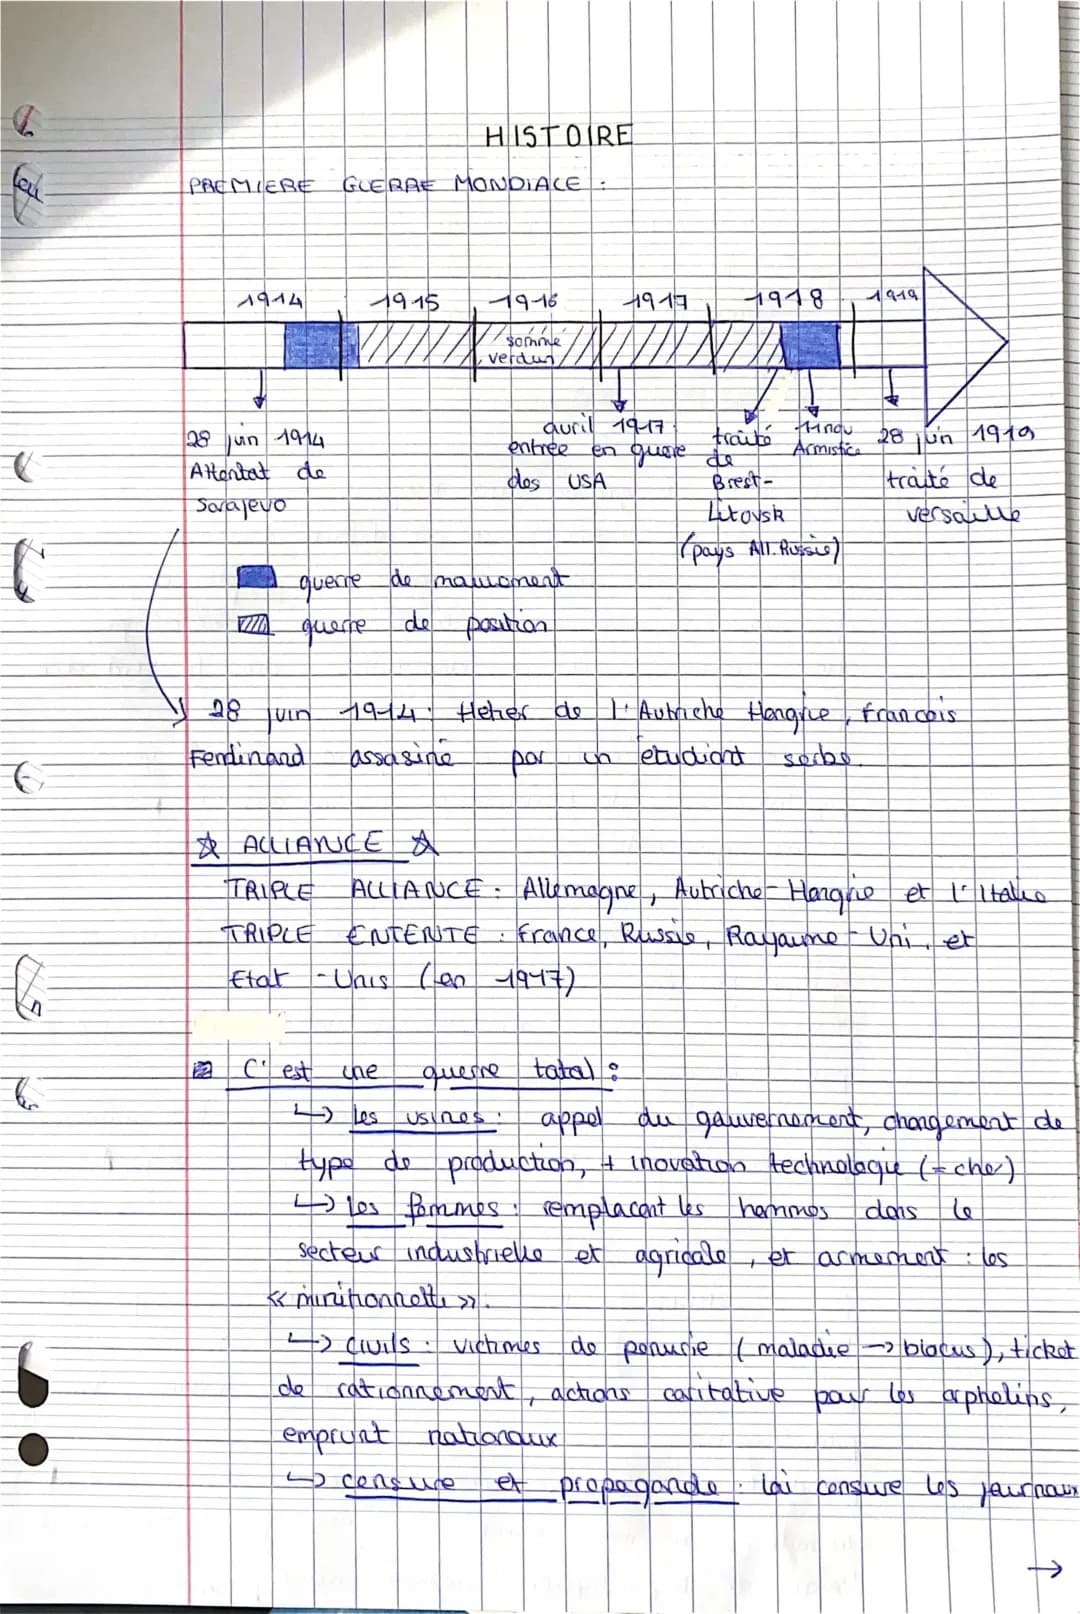 HISTOIRE
PREMIERE GUERRE MONDIALE :
1914 1915 1916 1917 1918 1919
somme
verdun
28 juin 1914
Attentat de
Sarajevo
avril 1917
entrée en guerre
des USA
traité
de
Brest-
Litovsk
(pays All. Russie)
11 nov
Armistice
28 juin 1919
traité de
versaille
guerre de mouvement
guerre de position
28 juin 1914 : Hetier de l'Autriche Hongrie, francois
Ferdinand assasiné par un etudiant serbe.
ALLIANCE
TRIPLE ALLIANCE : Allemagne, Autriche-Hongrie et l'Italie
TRIPLE ENTENTE : France, Russie, Royaume-Uni, et
Etat-Unis (en 1917)
C'est une guerre total :
↳ les usines : appel du gouvernement, changement de
type de production, + inovation technologie (= cher)
↳ les femmes : remplacent les hommes dans le
secteur industrielle et agricole, et armement : les
« minitionnette ».
↳ civils : victimes de penurie (maladie → blocus), ticket
de rationnement, actions caritative pour les orphelins,
emprunt nationaux
↳ censure et propagande : loi censure les journaux
→